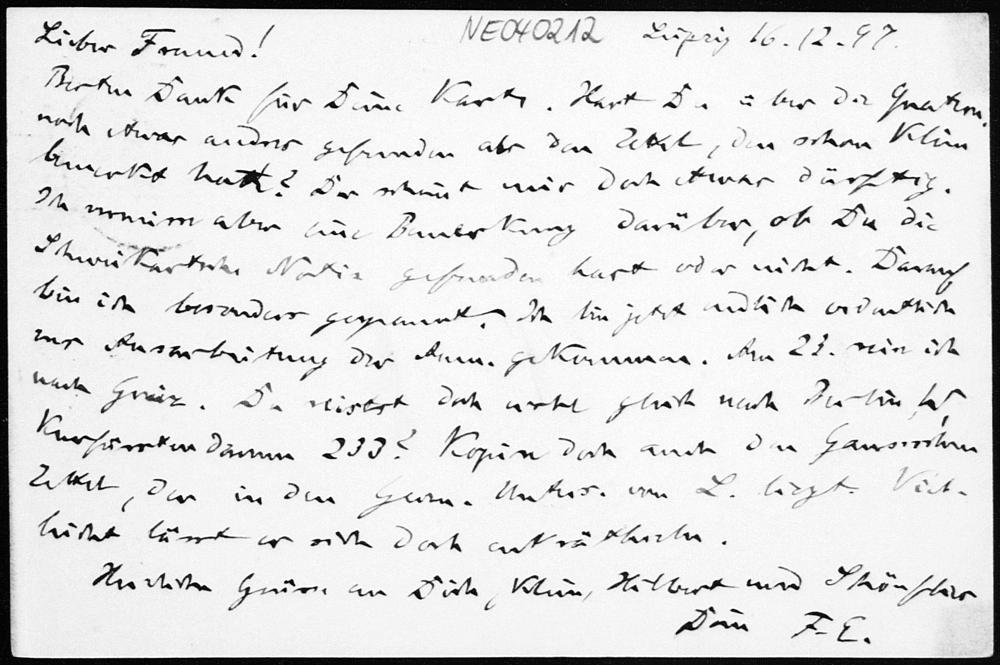 NE040212 Leipzig 16.12.97.
Lieber Freund!
Besten Dank für Deine Karte. Hast Du über die Quatern.
noch etwas anders gefunden als den Zettel, den schon Klein
bemerkt hatte? Der scheint mir doch etwas dürftig.
Ich vermisse aber eine Bemerkung darüber, ob Du die
Schweikartsche Notiz gefunden hast oder nicht. Darauf
bin ich besonders gespannt. Ich bin jetzt endlich ordentlich
zur Ausarbeitung der Anm. gekommen. Am 23. reise ich
nach Greiz. Du reisest doch wohl gleich nach Berlin W,
Kurfürstendamm 233? Kopiere doch auch den Gaussischen
Zettel, der in den Geom. Unters. von L. liegt. Viel-
leicht lässt er sich doch enträthseln.
Herzliche Grüsse an Dich, Klein, Hilbert und Schönflies
Dein F. E.